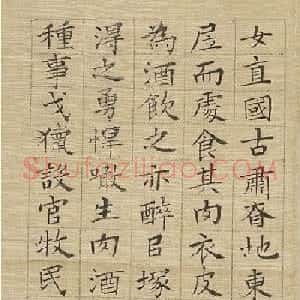 女直國古肅眘地東
屋而處食其肉衣皮
為酒飲之亦醉㠯塚
淂之勇悍啜生肉酒
種事戈獵設官牧民
Shufaziliao.COM